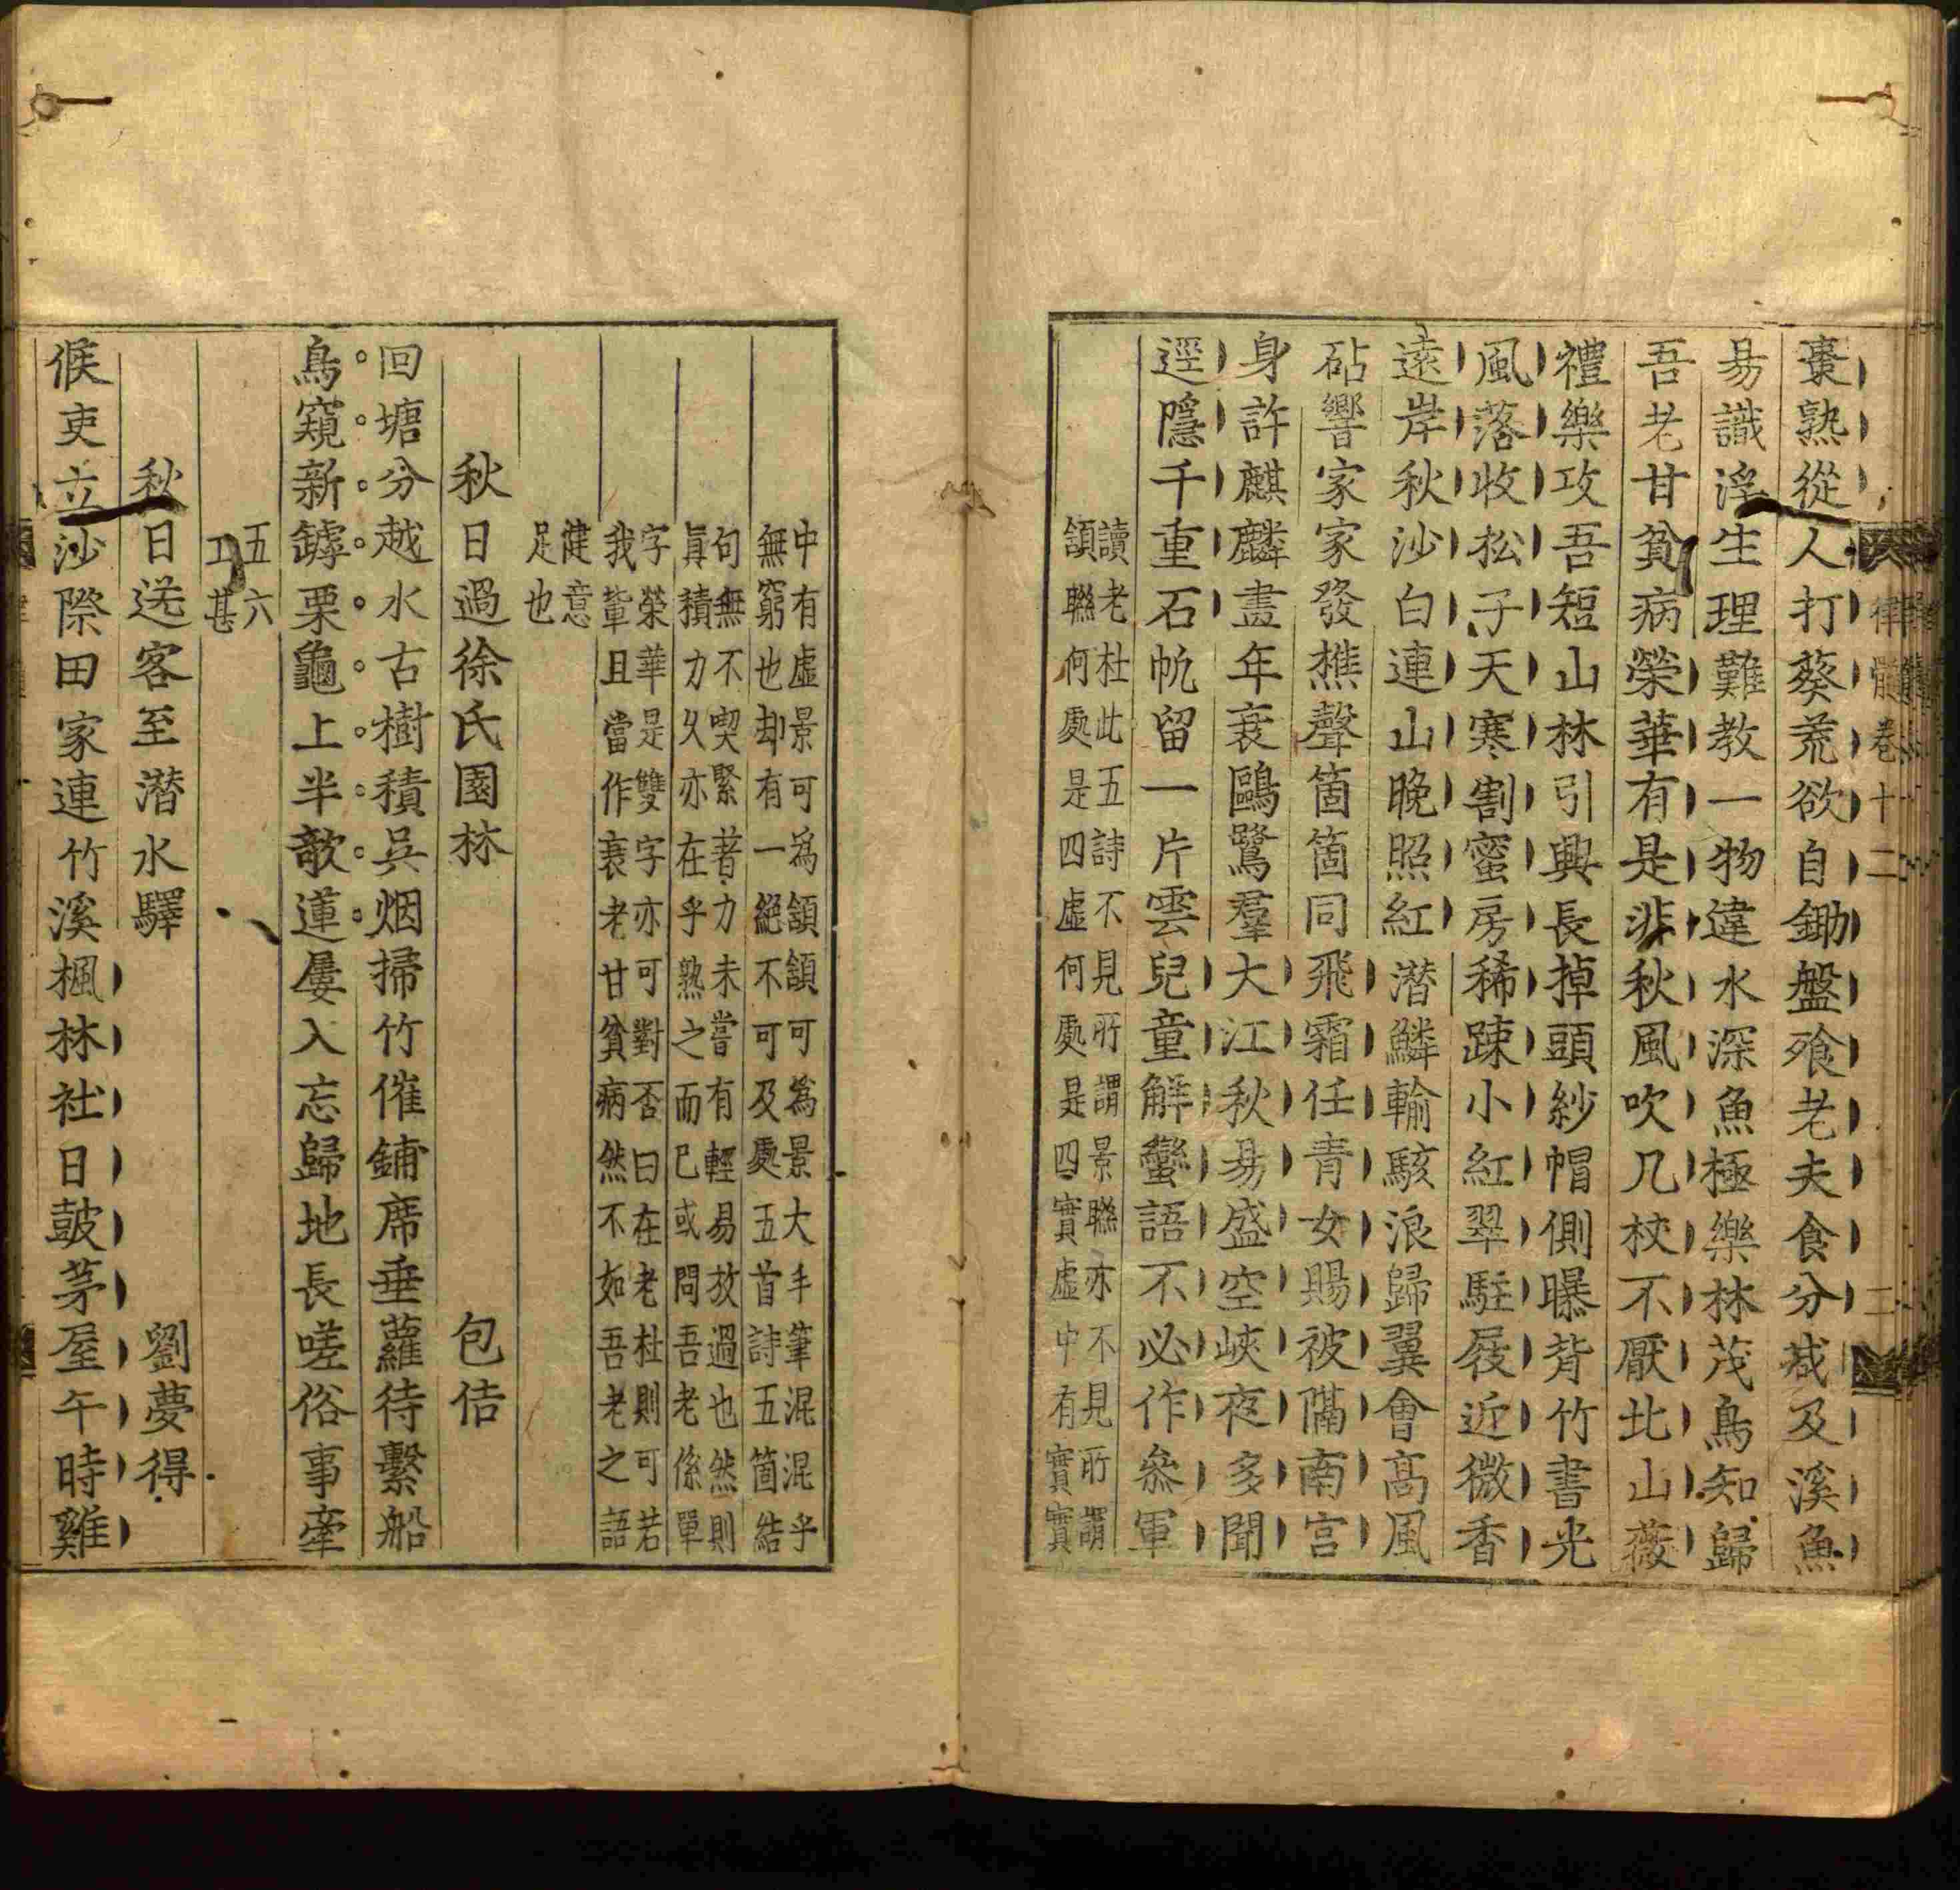 律髓卷十二
二
棗熟從人打葵荒欲自鋤盤飱老夫食分减及溪魚
易識浮生理難教一物違水深魚極樂林茂鳥知歸
吾老甘貧病榮華有是非秋風吹几杖不厭北山薇
禮樂攻吾短山林引興長掉頭紗帽側曝背竹書光
風落收松子天寒割蜜房稀踈小紅翠駐屐近微香
遠岸秋沙白連山晚照紅潜鱗輸駭浪歸翼會高風
砧響家家發樵聲箇箇同飛霜任青女賜被隔南宫
身許麒麟畫年衰鷗鷺羣大江秋易盛空峽夜多聞
逕隱千重石帆留一片雲兒童解蠻語不必作叅軍
讀老杜此五詩不見所謂景聯亦不見所謂
頷聯何處是四虚何處是四實虚中有實實
中有虚景可為頷頷可為景大手筆混混乎
無窮也却有一絕不可及處五首詩五箇結
句無不喫緊著力未嘗有輕易放過也然則
真積力久亦在乎熟之而已或問吾老係單
字榮華是雙字亦可對否曰在老杜則可若
我輩且當作衰老甘貧病然不如吾老之語
健意
足也
秋日過徐氏園林 包佶
回塘分越水古樹積吳烟掃竹催鋪席垂蘿待繫船
鳥窺新罅栗龜上半欹蓮屢入忘歸地長嗟俗事牽
五六
工甚
秋日送客至潜水驛 劉夢得
候吏立沙際田家連竹溪楓林社日鼓茅屋午時雞